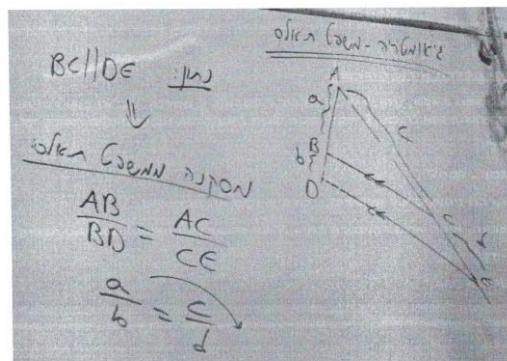 גיאומטריה - משפט תאלס
נתון: BC||DE
⇓
מסקנה ממשפט תאלס:
AB/BD = AC/CE
a/b = c/d
A
a
c
B
b
D
c
d